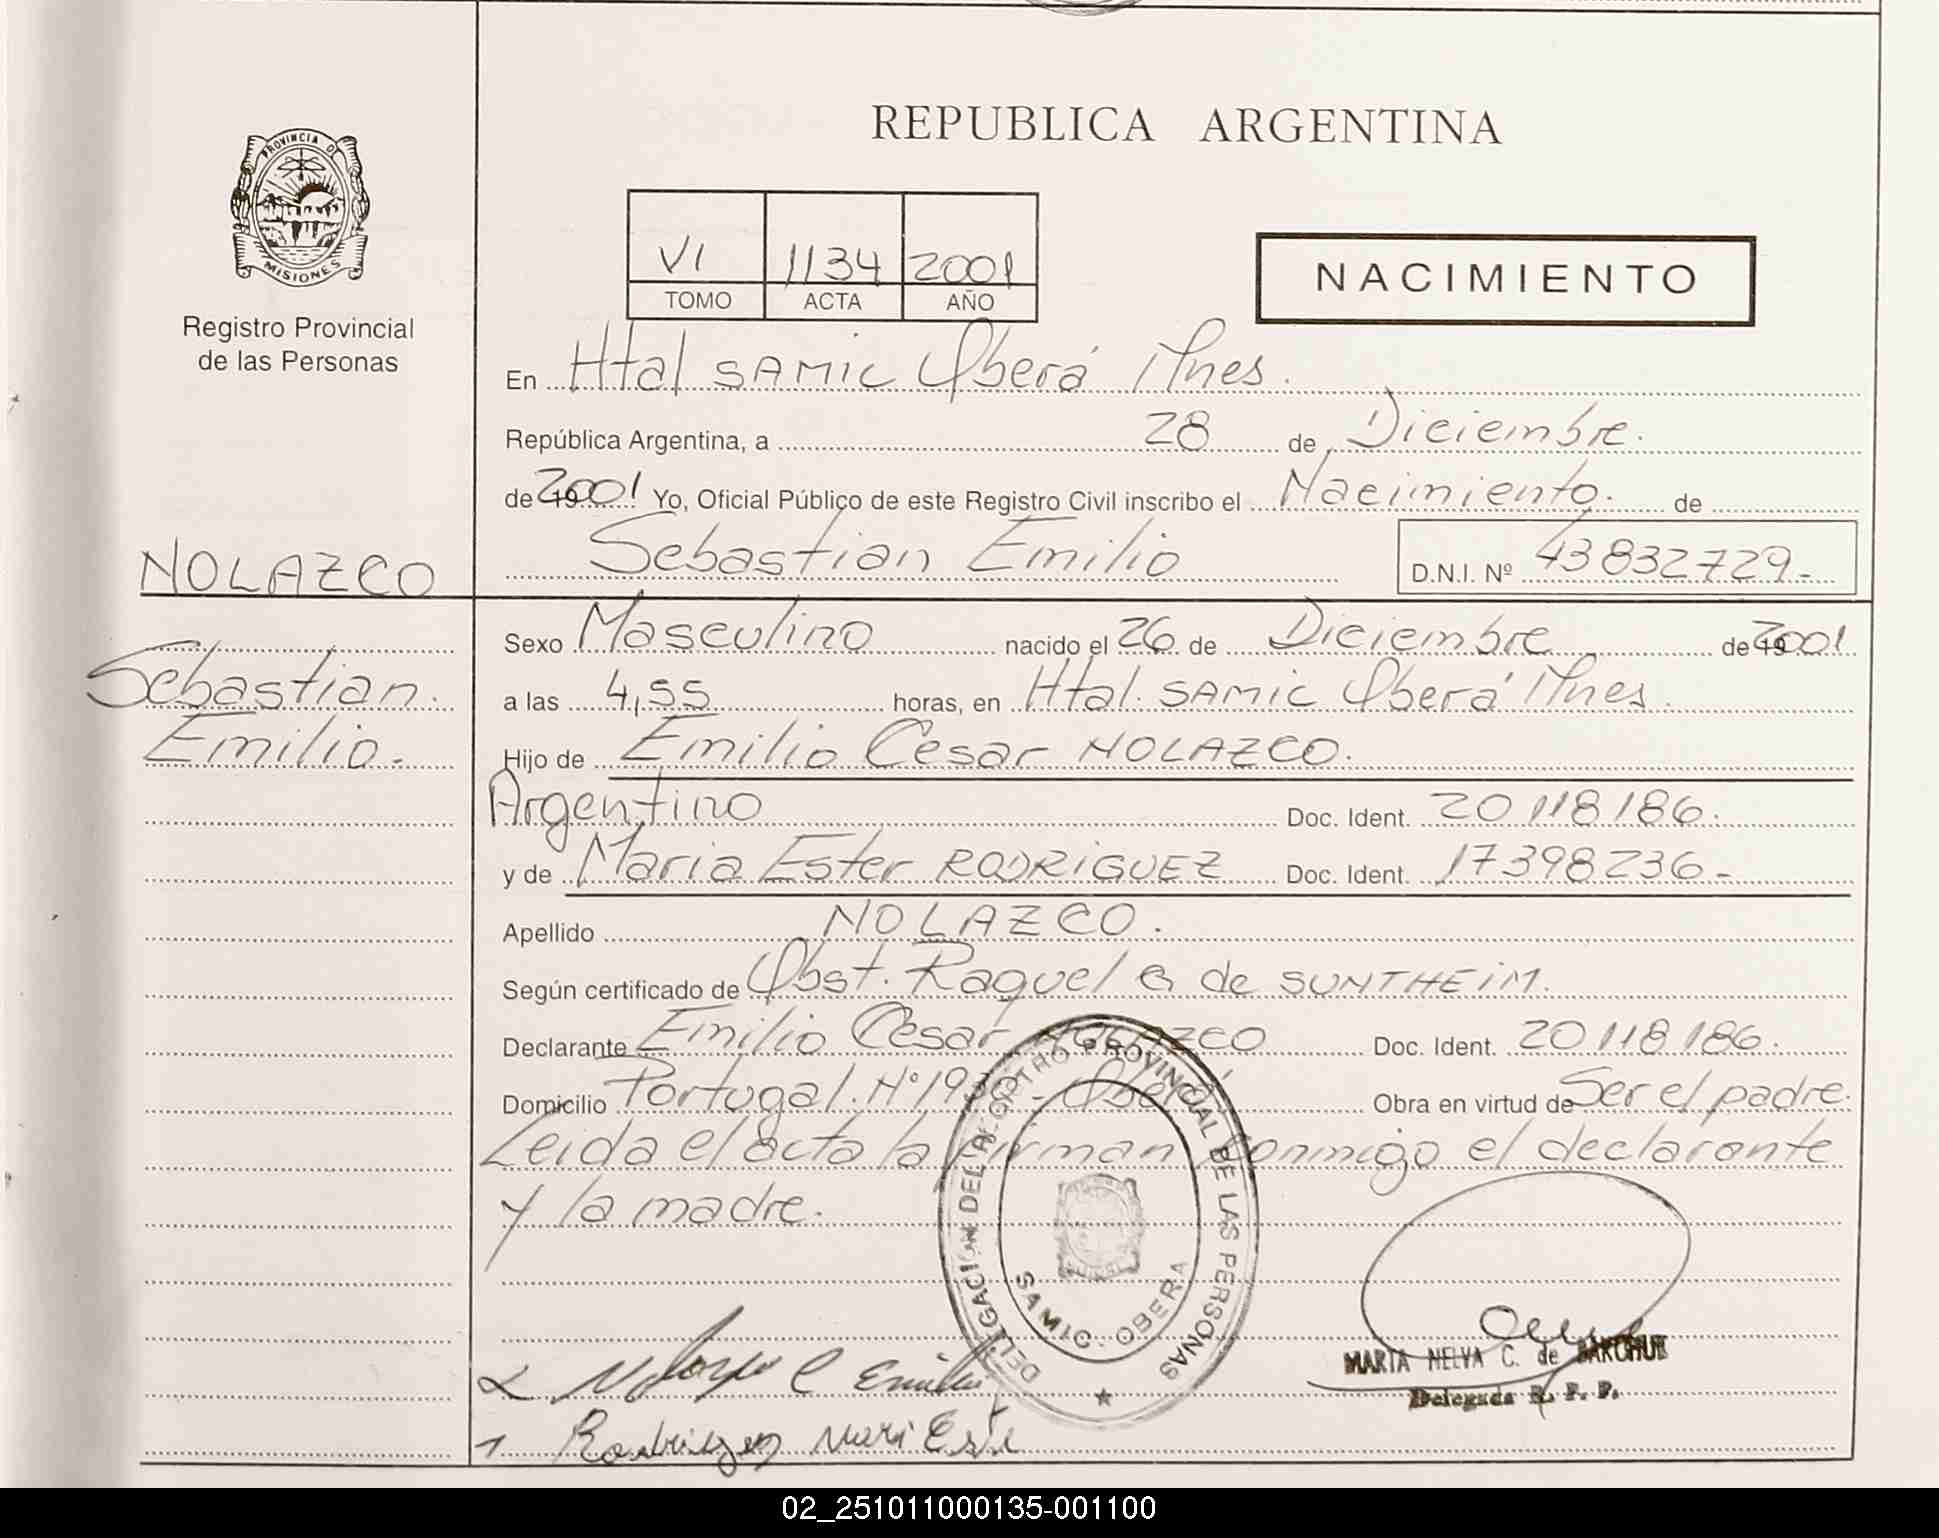 REPUBLICA ARGENTINA
PROVINCIA DE
MISIONES
Registro Provincial
de las Personas
VI 1134 2001
TOMO ACTA AÑO
NACIMIENTO
En Htal SAMIC Oberá Mnes.
República Argentina, a 28 de Diciembre.
de 2001 Yo, Oficial Público de este Registro Civil inscribo el Nacimiento. de
NOLAZCO
Sebastian Emilio
D.N.I. Nº 43832729-
Sebastian.
Emilio.-
Sexo Masculino nacido el 26 de Diciembre de 2001
a las 4,55 horas, en Htal. SAMIC Oberá Mnes.
Hijo de Emilio Cesar NOLAZCO.
Argentino Doc. Ident. 20118186.
y de Maria Ester RODRIGUEZ Doc. Ident. 17398236-
Apellido NOLAZCO.
Según certificado de Obst. Raquel de SUNTHEIM.
Declarante Emilio Cesar NOLAZCO Doc. Ident. 20118186.
Domicilio Portugal. Nº - Oberá Obra en virtud de Ser el padre.
Leida el acta la firman conmigo el declarante
y la madre.
DELEGACION DEL REGISTRO PROVINCIAL DE LAS PERSONAS
SAMIC. OBERA
C Emilio
MARIA NELVA C. de
Delegada R. P. P.
Rodriguez Mari Este
02_251011000135-001100